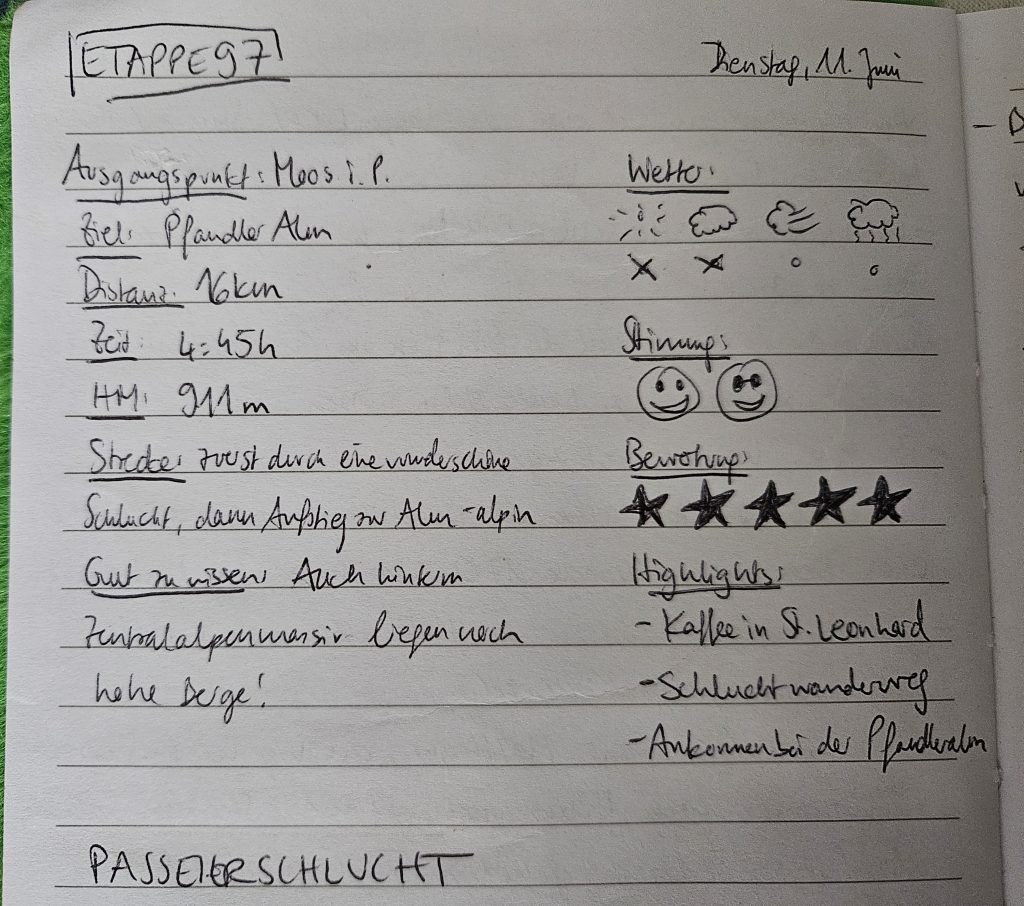 ETAPPE 97
Dienstag, 11. Juni
Ausgangspunkt: Moos i. P.
Ziel: Pfandler Alm
Distanz: 16km
Zeit: 4:45h
HM: 911m
Strecke: zuerst durch eine wunderschöne
Schlucht, dann Aufstieg zur Alm - alpin
Gut zu wissen: Auch hinterm
Zentralalpenmassiv liegen noch
hohe Berge!
Wetter:
x x o o
Stimmung:
Bewertung:
Highlights:
- Kaffee in St. Leonhard
- Schluchtwanderweg
- Ankommen bei der Pfandleralm
PASSEIERSCHLUCHT